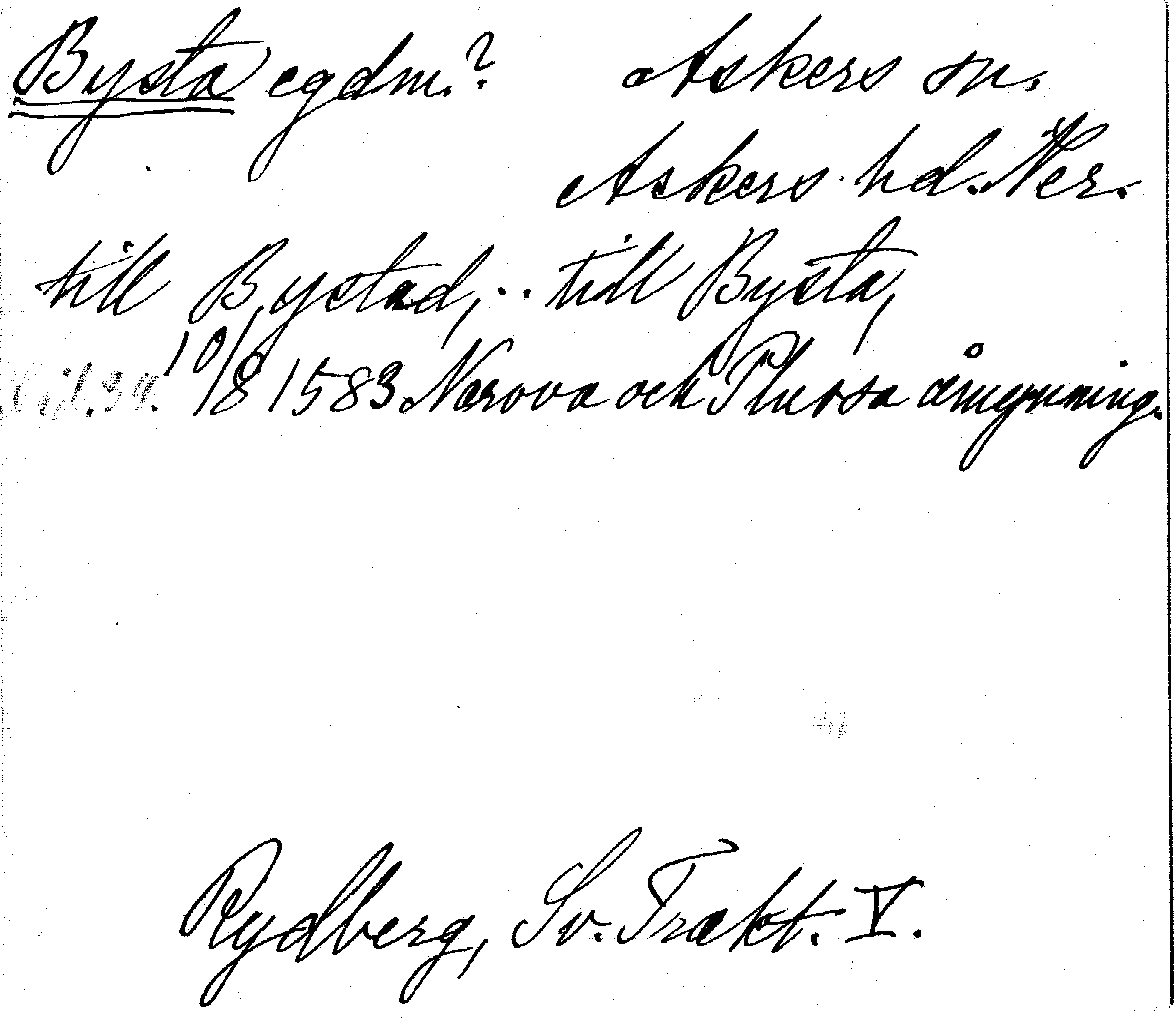 Bysta egdm.? Askers sn.
Askers hd. Ner.
till Bystad, .. till Bysta,
10/8 1583 Narova och Plussa åmynning.
Rydberg, Sv. Trakt. V.